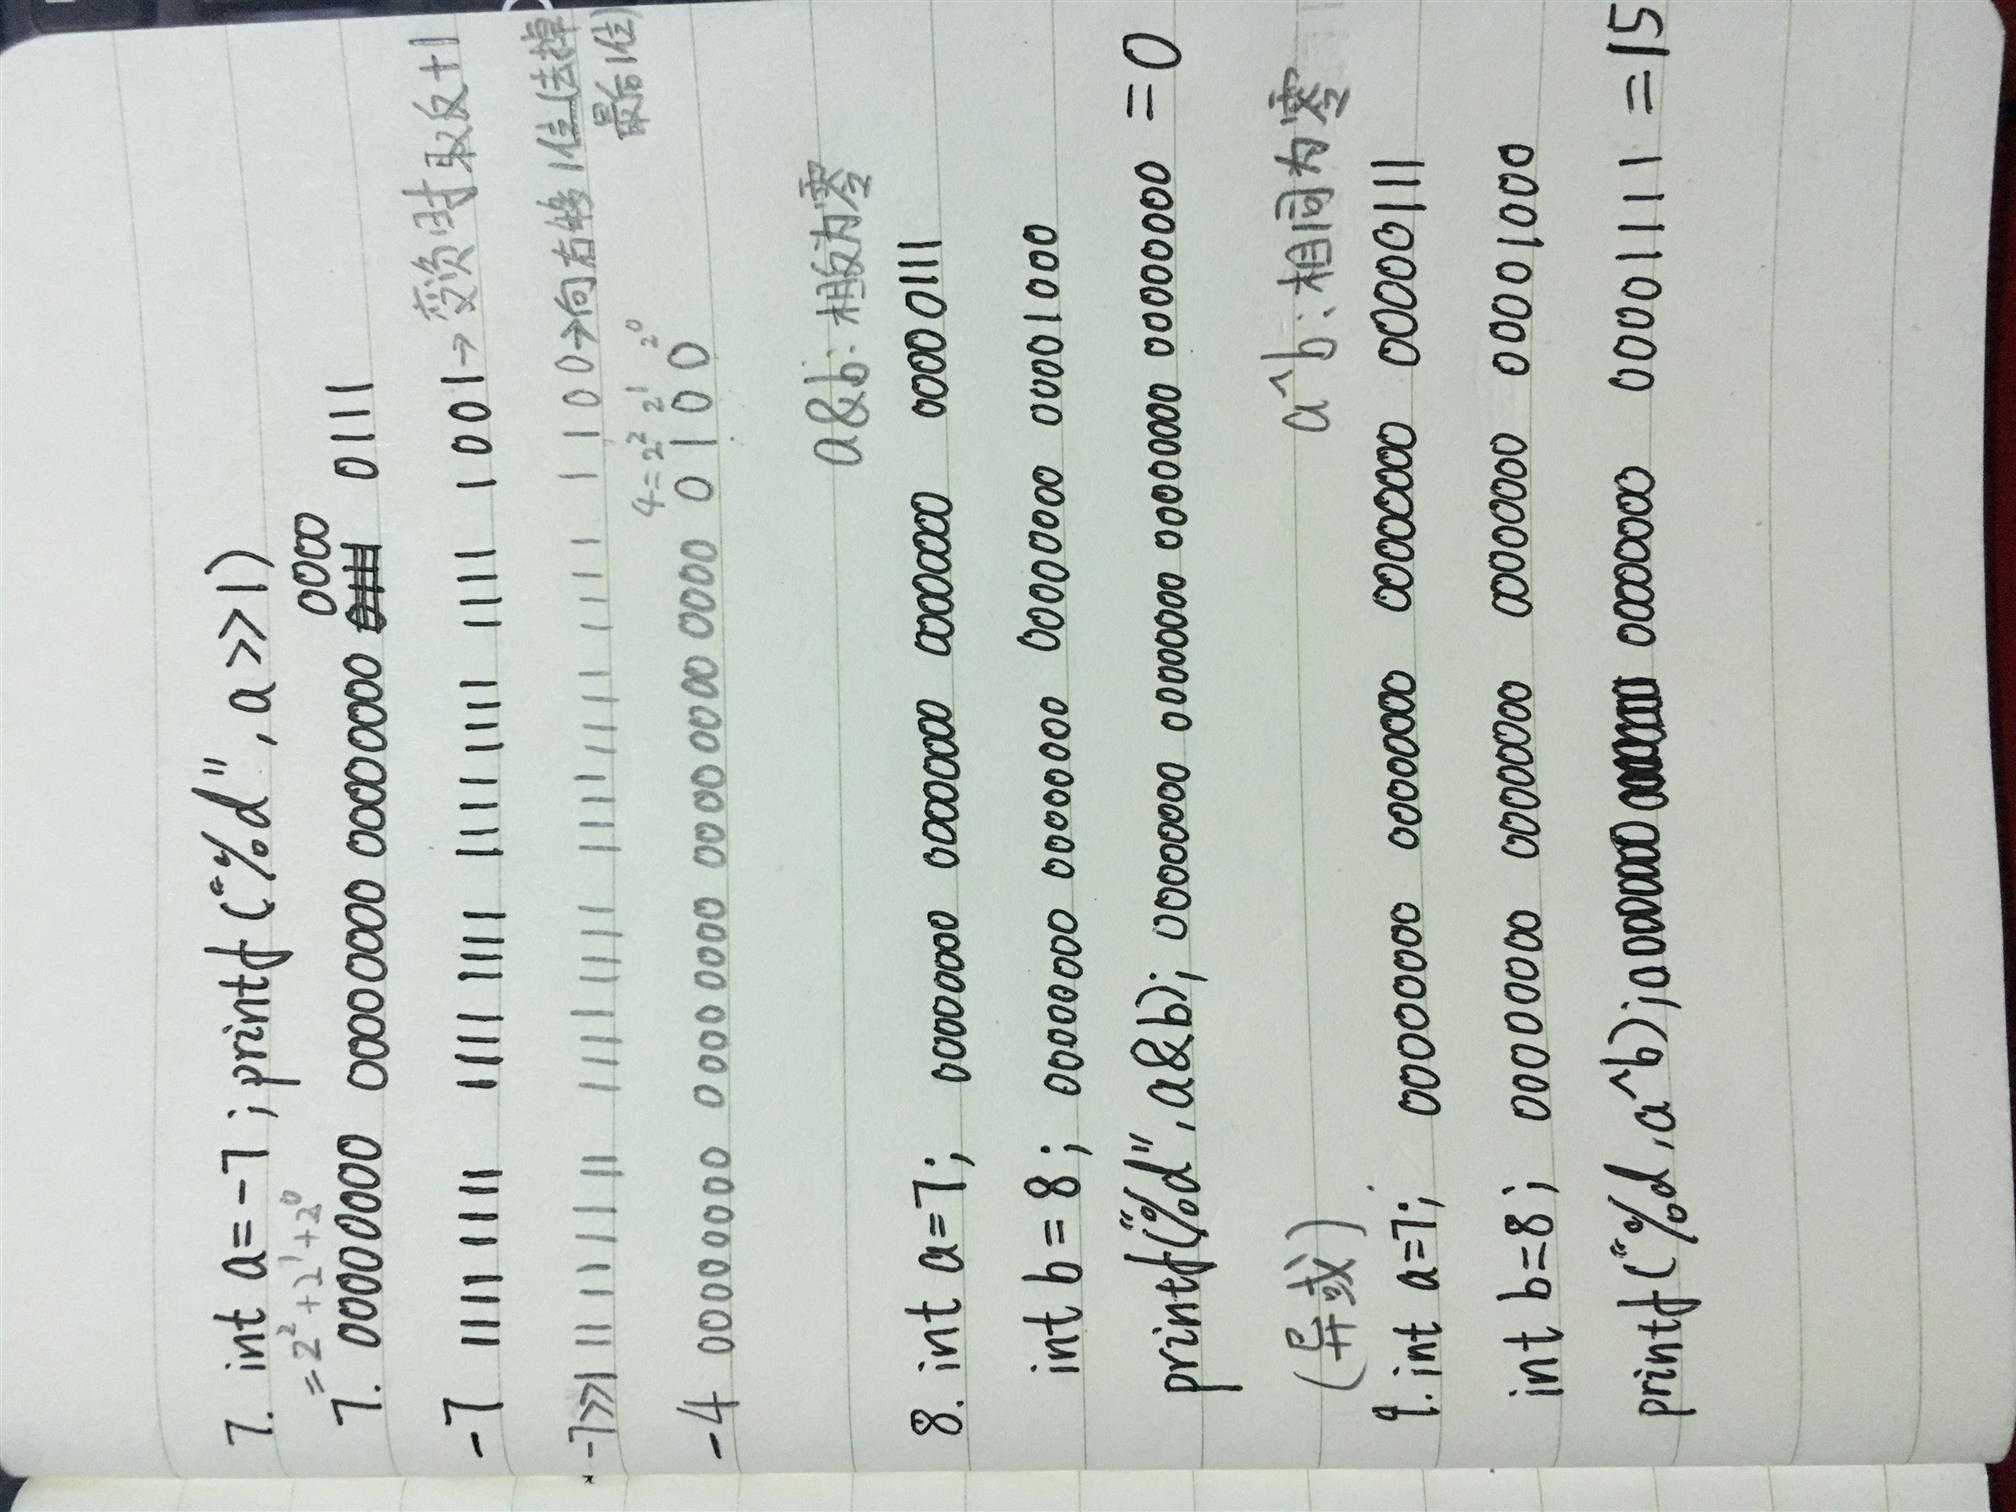 7. int a=-7; printf("%d",a>>1)
=2² +2¹ +2⁰
0000
7. 00000000 00000000 00000000 0111
-7 1111 1111 1111 1111 1111 1111 1111 1001→变负时取反+1
-7>>1 11 11 11 11 1111 1111 1111 1111 1111 1100→向右移1位(去掉
最后1位)
4=2² 2¹ 2⁰
-4 00000000 00000000 00000000 0000 0100
a&b:相反为零
8. int a=7; 00000000 00000000 00000000 00000111
int b=8; 00000000 00000000 00000000 00001000
printf("%d",a&b); 00000000 00000000 00000000 00000000 =0
(异或) a^b:相同为零
9. int a=7; 00000000 00000000 00000000 00000111
int b=8; 00000000 00000000 00000000 00001000
printf("%d,a^b); 00000000 00000000 00001111 =15